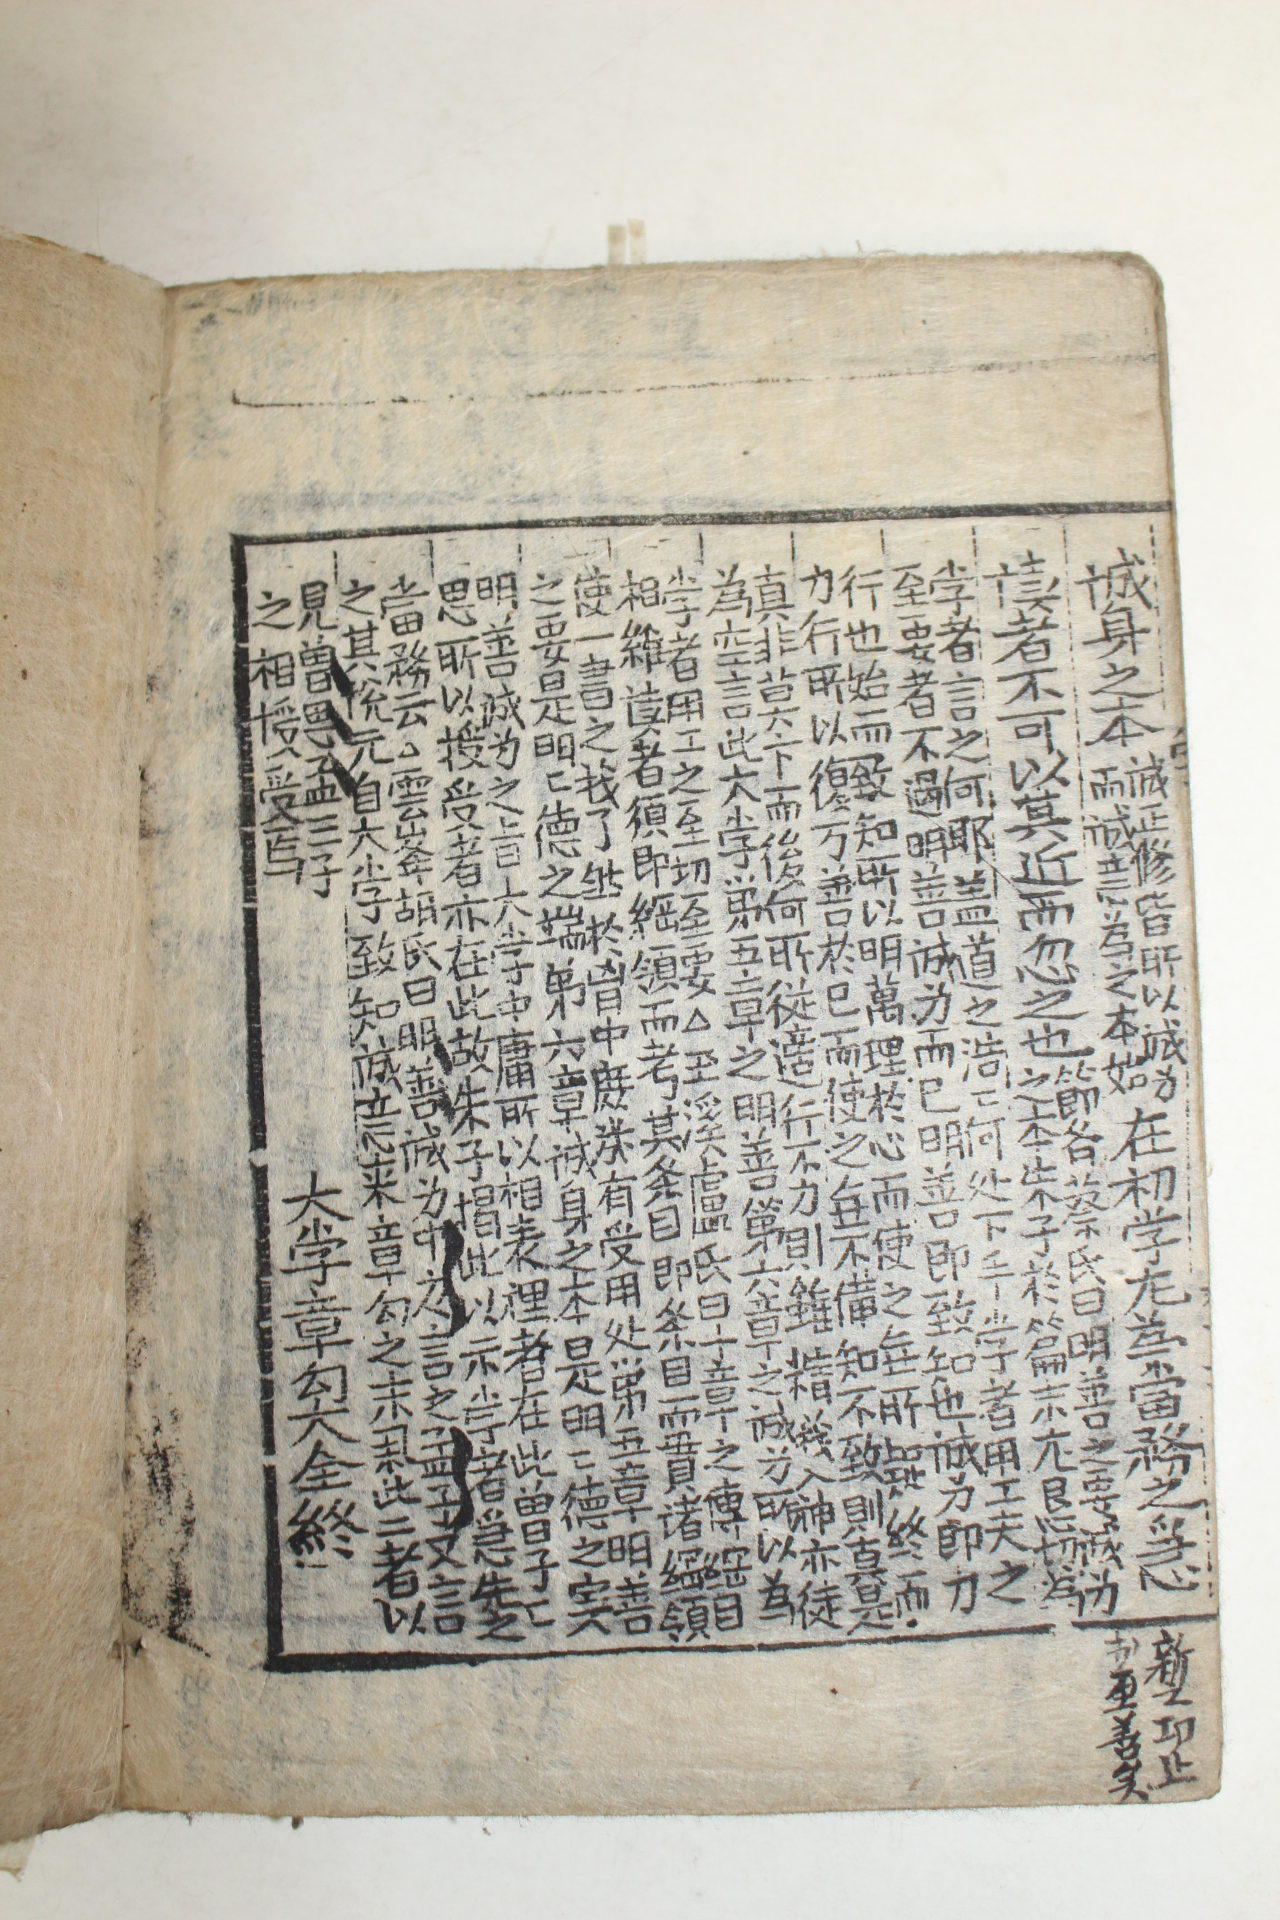 誠身之本
誠正修皆所以誠身
而誠意為之本始
在初学尤為當務之急
讀者不可以其近而忽之也
節各蔡氏曰明善之要誠身
之本朱子於篇末尤懇切為
学者言之何耶盖道之浩〻何处下手学者用工夫之
至要者不過明善誠身而已明善即致知也誠身即力
行也始而致知所以明萬理於心而使之無所疑終而
力行所以復万善於己而使之無不備知不致則真是
真非莫卞而後何所從適行不力則雖精義入神亦徒
為空言此大学第五章之明善第六章之誠身所以為
学者用工之至切至要△玉溪盧氏曰十章之傳綱目
相維讀者須即綱領而考其条目即条目而貫諸綱領
使一書之我了然於胷中庶几有受用处第五章明善
之要是明〻德之端第六章誠身之本是明〻德之实
明善誠身之旨大学中庸所以相表裡者在此曾子〻
思所以授受者亦在此故朱子揭此以示学者急先之
當務云△雲峯胡氏曰明善誠身中庸言之孟子又言
之其説元自大学致知誠意来章句之末举此二者以
見曾思孟三子
之相授受焉
大学章句大全終
至善矣